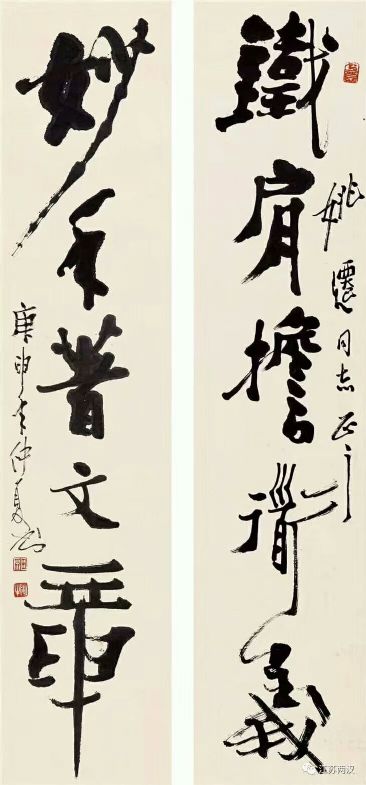 鐵肩擔道義
姚遷同志正之
妙手著文章
庚申年仲夏
江苏两汉